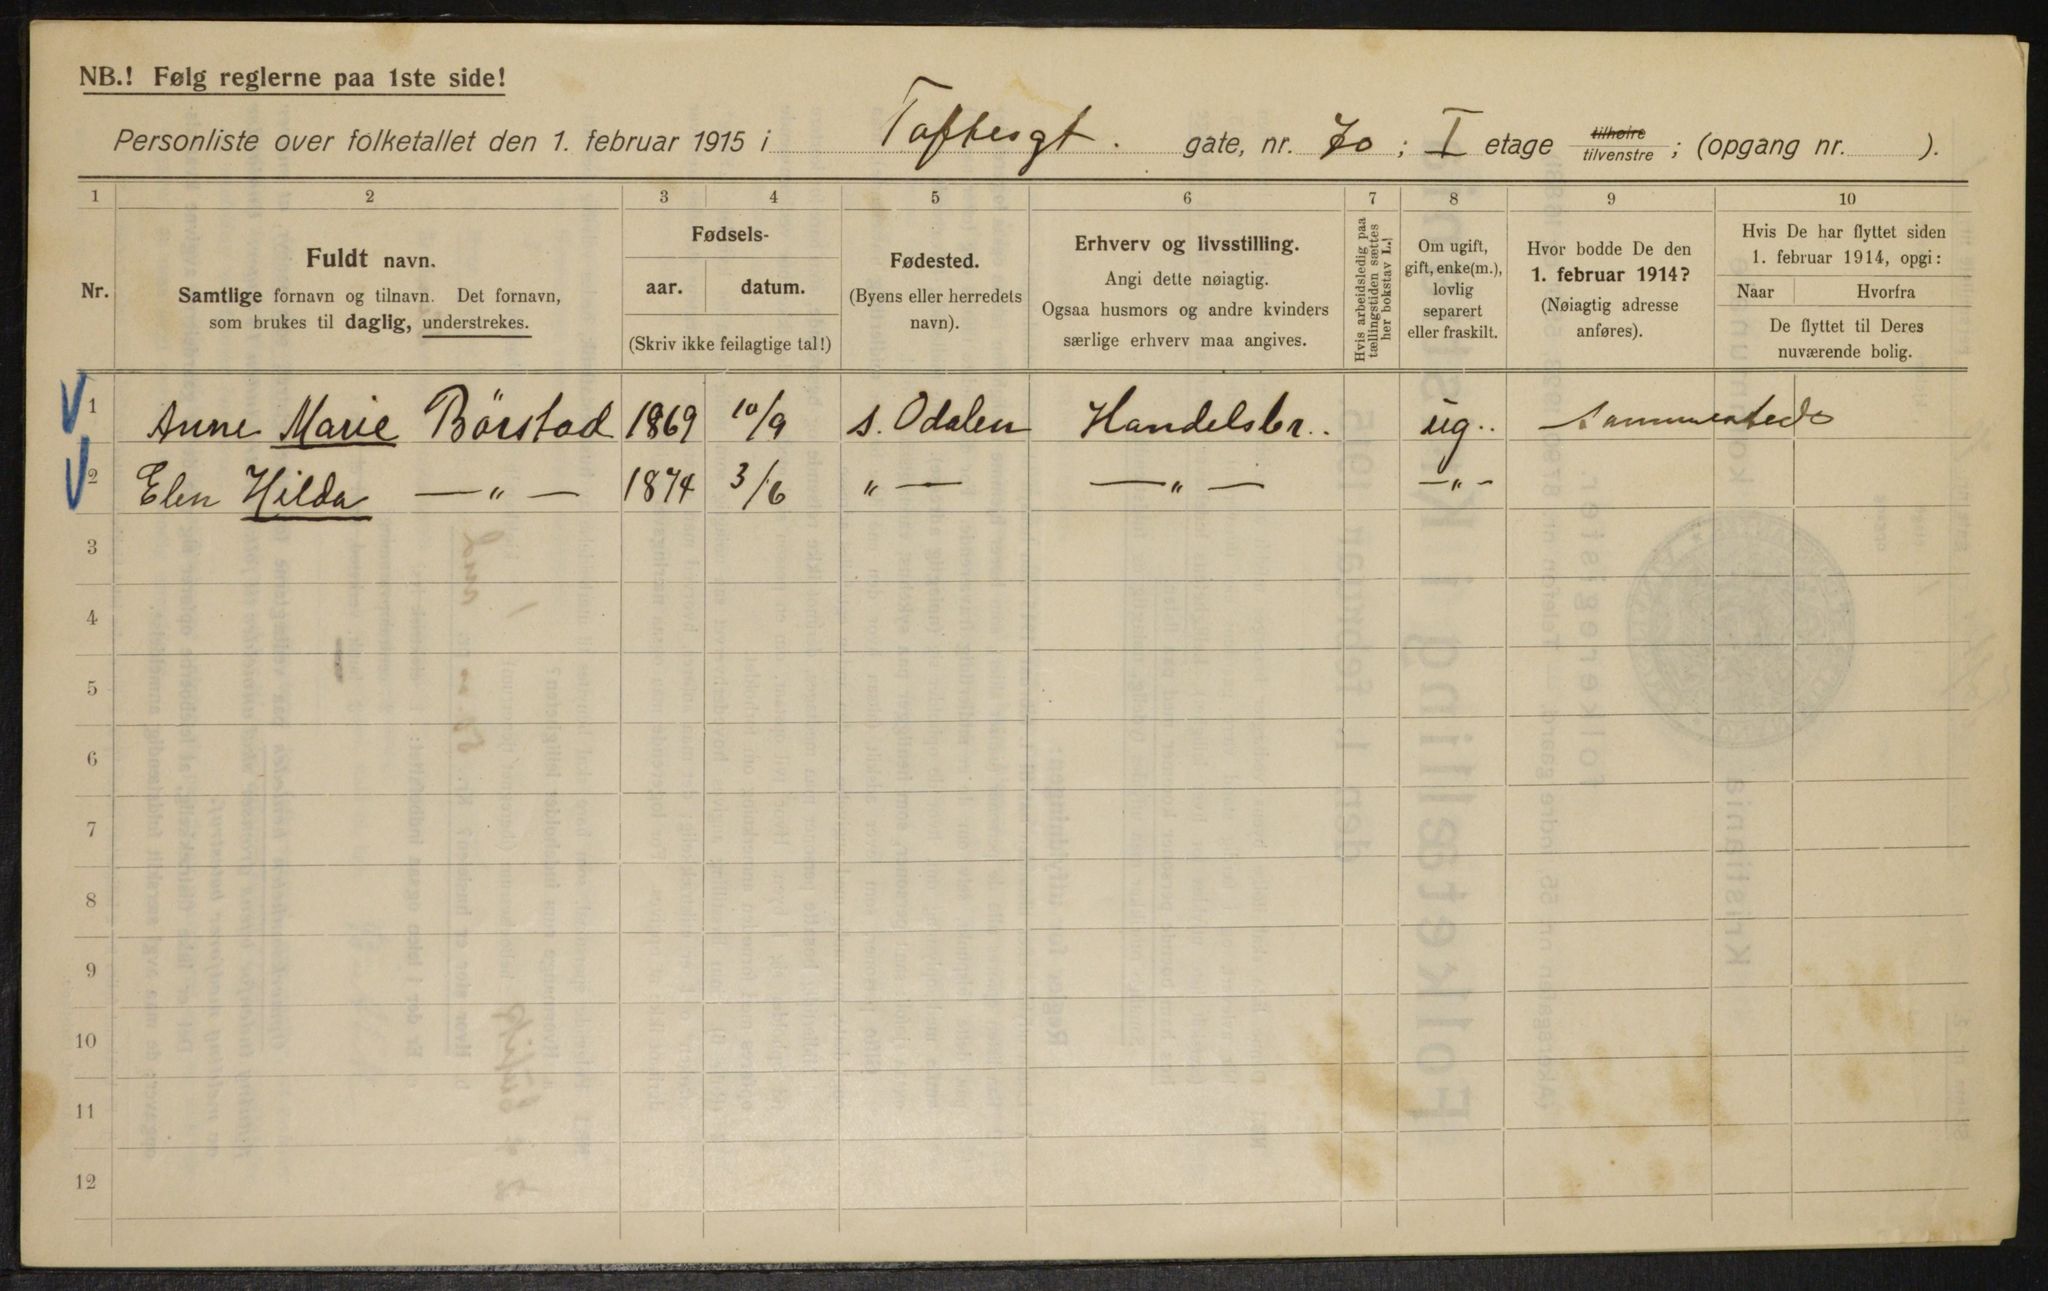 NB.! Følg reglerne paa 1ste side!
Personliste over folketallet den 1. februar 1915 i Toftesgt. gate, nr. 70; I etage tilhøire tilvenstre; (opgang nr. ).
1 2 3 4 5 6 7 8 9 10
Nr.
Fuldt navn.
Samtlige fornavn og tilnavn. Det fornavn,
som brukes til daglig, understrekes.
Fødsels-
aar. datum.
(Skriv ikke feilagtige tal!)
Fødested.
(Byens eller herredets
navn).
Erhverv og livsstilling.
Angi dette nøiagtig.
Ogsaa husmors og andre kvinders
særlige erhverv maa angives.
Hvis arbeidsledig paa
tællingstiden sættes
her bokstav L.!
Om ugift,
gift, enke(m.),
lovlig
separert
eller fraskilt.
Hvor bodde De den
1. februar 1914?
(Nøiagtig adresse
anføres).
Hvis De har flyttet siden
1. februar 1914, opgi:
Naar Hvorfra
De flyttet til Deres
nuværende bolig.
1 Anne Marie Börstad 1869 10/9 s. Odalen Handelsbr.. ug.. Sammesteds
2 Elen Hilda —„— 1874 3/6 „ — —„— —„—
3
4
5
6
7
8
9
10
11
12